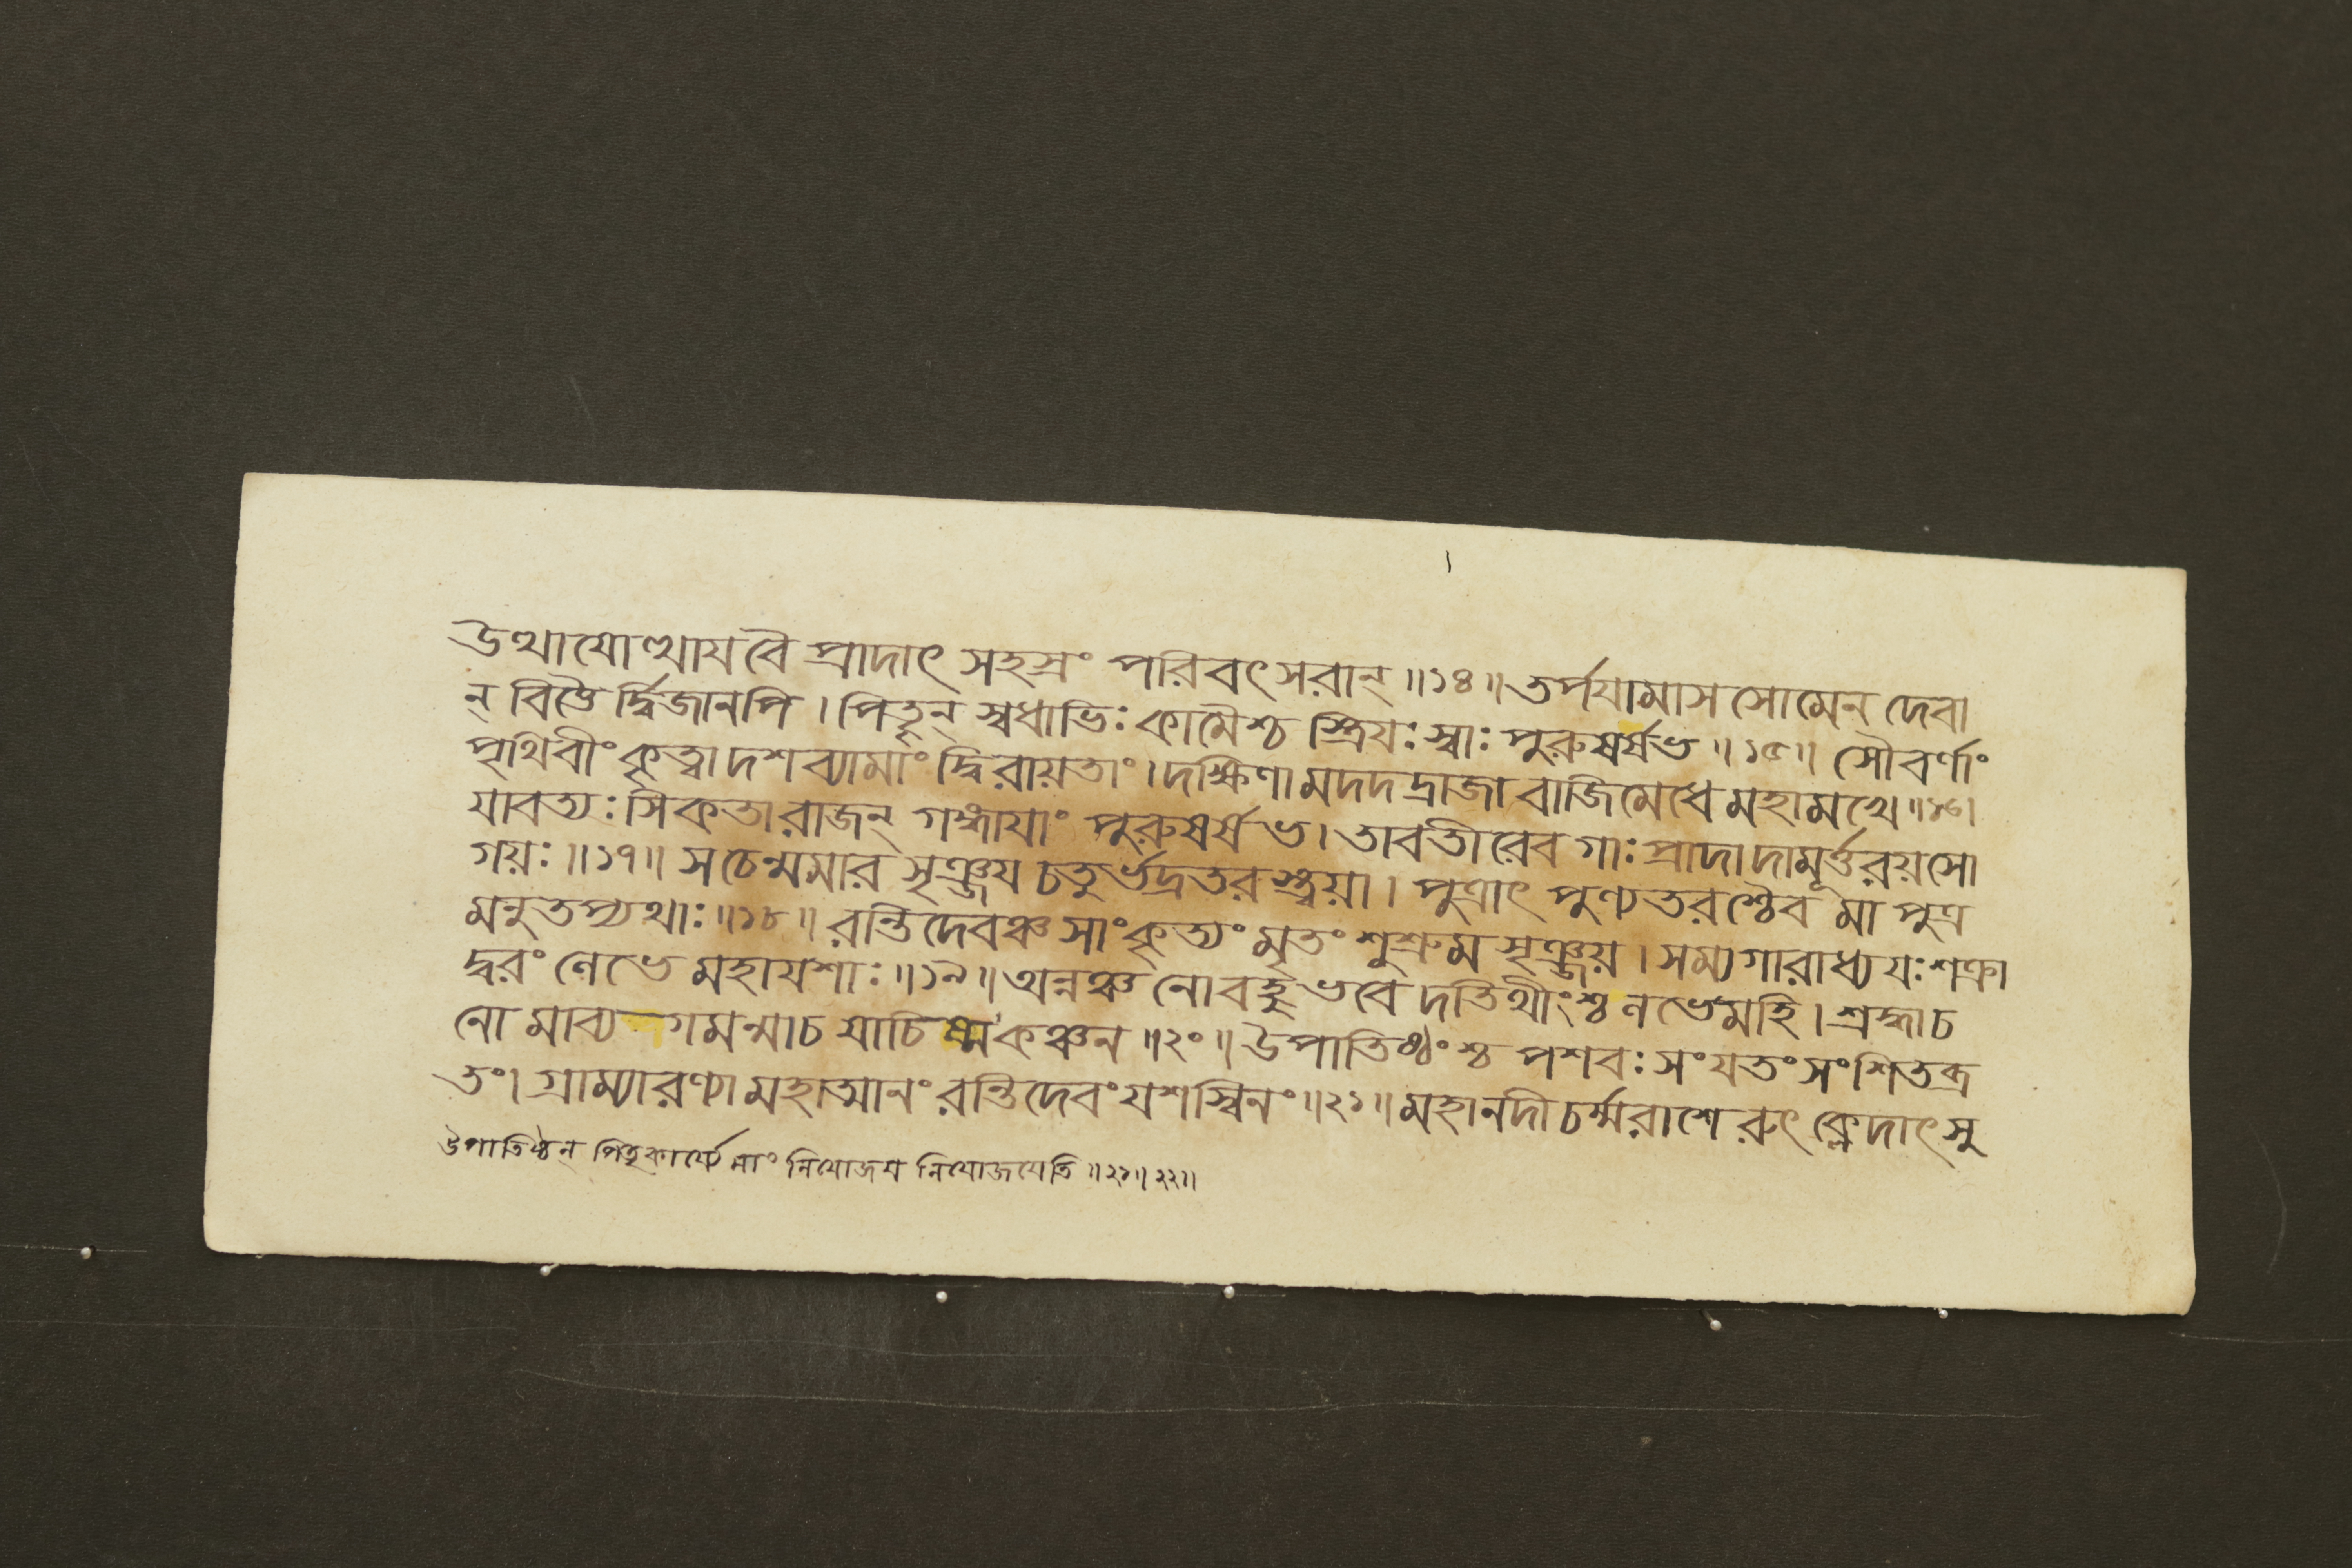 উত্থাযোত্থায বৈ প্রাদাৎ সহস্রং পরিবৎসরান্॥১৪॥তর্পযামাস সোমেন দেবা
ন্ বিত্তৈর্দ্বিজানপি । পিতৄন্ স্বধাভিঃ কামৈশ্চ স্ত্রিযঃ স্বাঃ পুরুষর্ষভ॥১৫॥ সৌবর্ণাং
পৃথিবীং কৃত্বা দশব্যামাং দ্বিরায়তাং।দক্ষিণামদদদ্রাজা বাজিমেধে মহামখে॥১৬।
যাবত্যঃ সিকতা রাজন্ গঙ্গাযাং পুরুষর্ষভ। তাবতীরেব গাঃ প্রাদাদামূর্ত্তরয়সো
গয়ঃ॥১৭॥ স চেন্মমার সৃঞ্জয চতুর্ভদ্রতরস্ত্বয়া। পুত্রাৎ পুণ্যতরশ্চৈব মা পুত্র
মনুতপ্যথাঃ॥১৮॥ রন্তিদেবঞ্চ সাংকৃত্যং মৃতং শুশ্রুম সৃঞ্জয়। সম্যগারাধ্য যঃ শক্রা
দ্বরং লেভে মহাযশাঃ॥১৯॥অন্নঞ্চ নো বহু ভবেদতিথীংশ্চ লভেমহি। শ্রদ্ধা চ
নো মা ব্যগমন্মা চ যাচিষ্ম কঞ্চন॥২০॥উপাতিষ্ঠংশ্চ পশবঃ সংযতং সংশিতব্র
তং। গ্রাম্যারণ্যা মহাত্মানং রন্তিদেবং যশস্বিনং॥২১॥মহানদী চর্ম্মরাশেরুৎক্লেদাৎ সু
উপাতিষ্ঠন্ পিতৃকার্য্যে মাং নিযোজয নিযোজযেতি॥২১॥২২॥